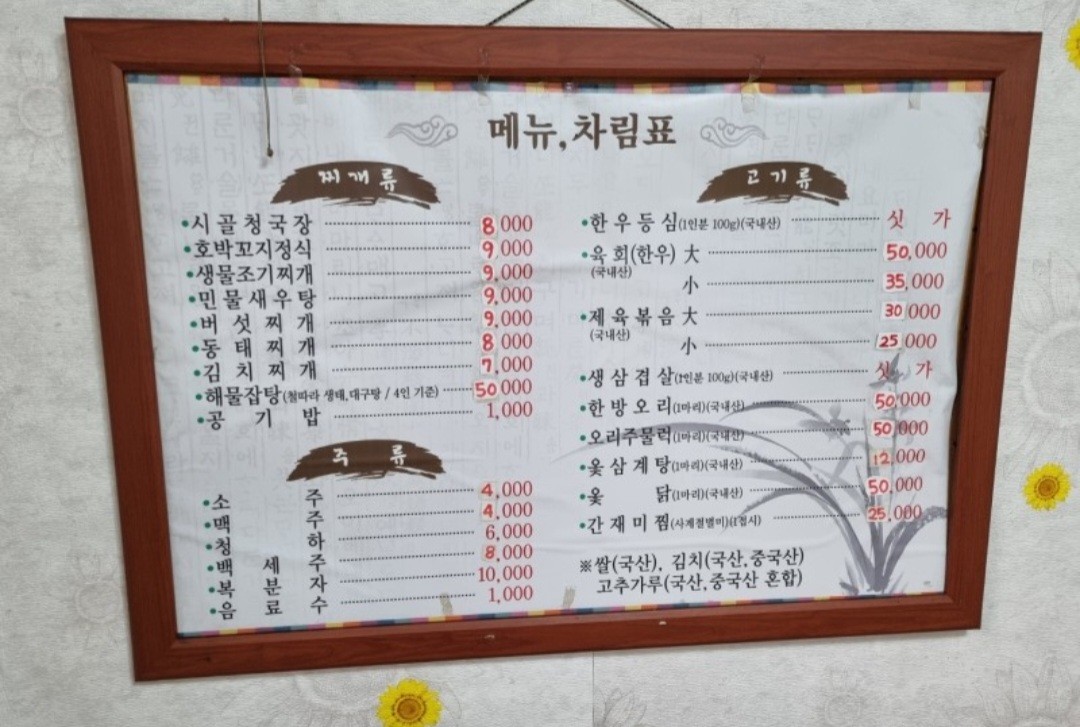 메뉴,차림표
찌개류
•시골청국장 8,000
•호박꼬지정식 9,000
•생물조기찌개 9,000
•민물새우탕 9,000
•버섯찌개 9,000
•동태찌개 8,000
•김치찌개 7,000
•해물잡탕(철따라 생태,대구탕 / 4인 기준) 50,000
•공기밥 1,000
주류
•소주 4,000
•맥주 4,000
•청하 6,000
•백세주 8,000
•복분자 10,000
•음료수 1,000
고기류
•한우등심(1인분 100g)(국내산) 싯가
•육회(한우) 大 50,000
(국내산)
小 35,000
•제육볶음 大 30,000
(국내산)
小 25,000
•생삼겹살(1인분 100g)(국내산) 싯가
•한방오리(1마리)(국내산) 50,000
•오리주물럭(1마리)(국내산) 50,000
•옻삼계탕(1마리)(국내산) 12,000
•옻닭(1마리)(국내산) 50,000
•간재미찜(사계절별미)(1접시) 25,000
※쌀(국산), 김치(국산,중국산)
고추가루(국산,중국산 혼합)